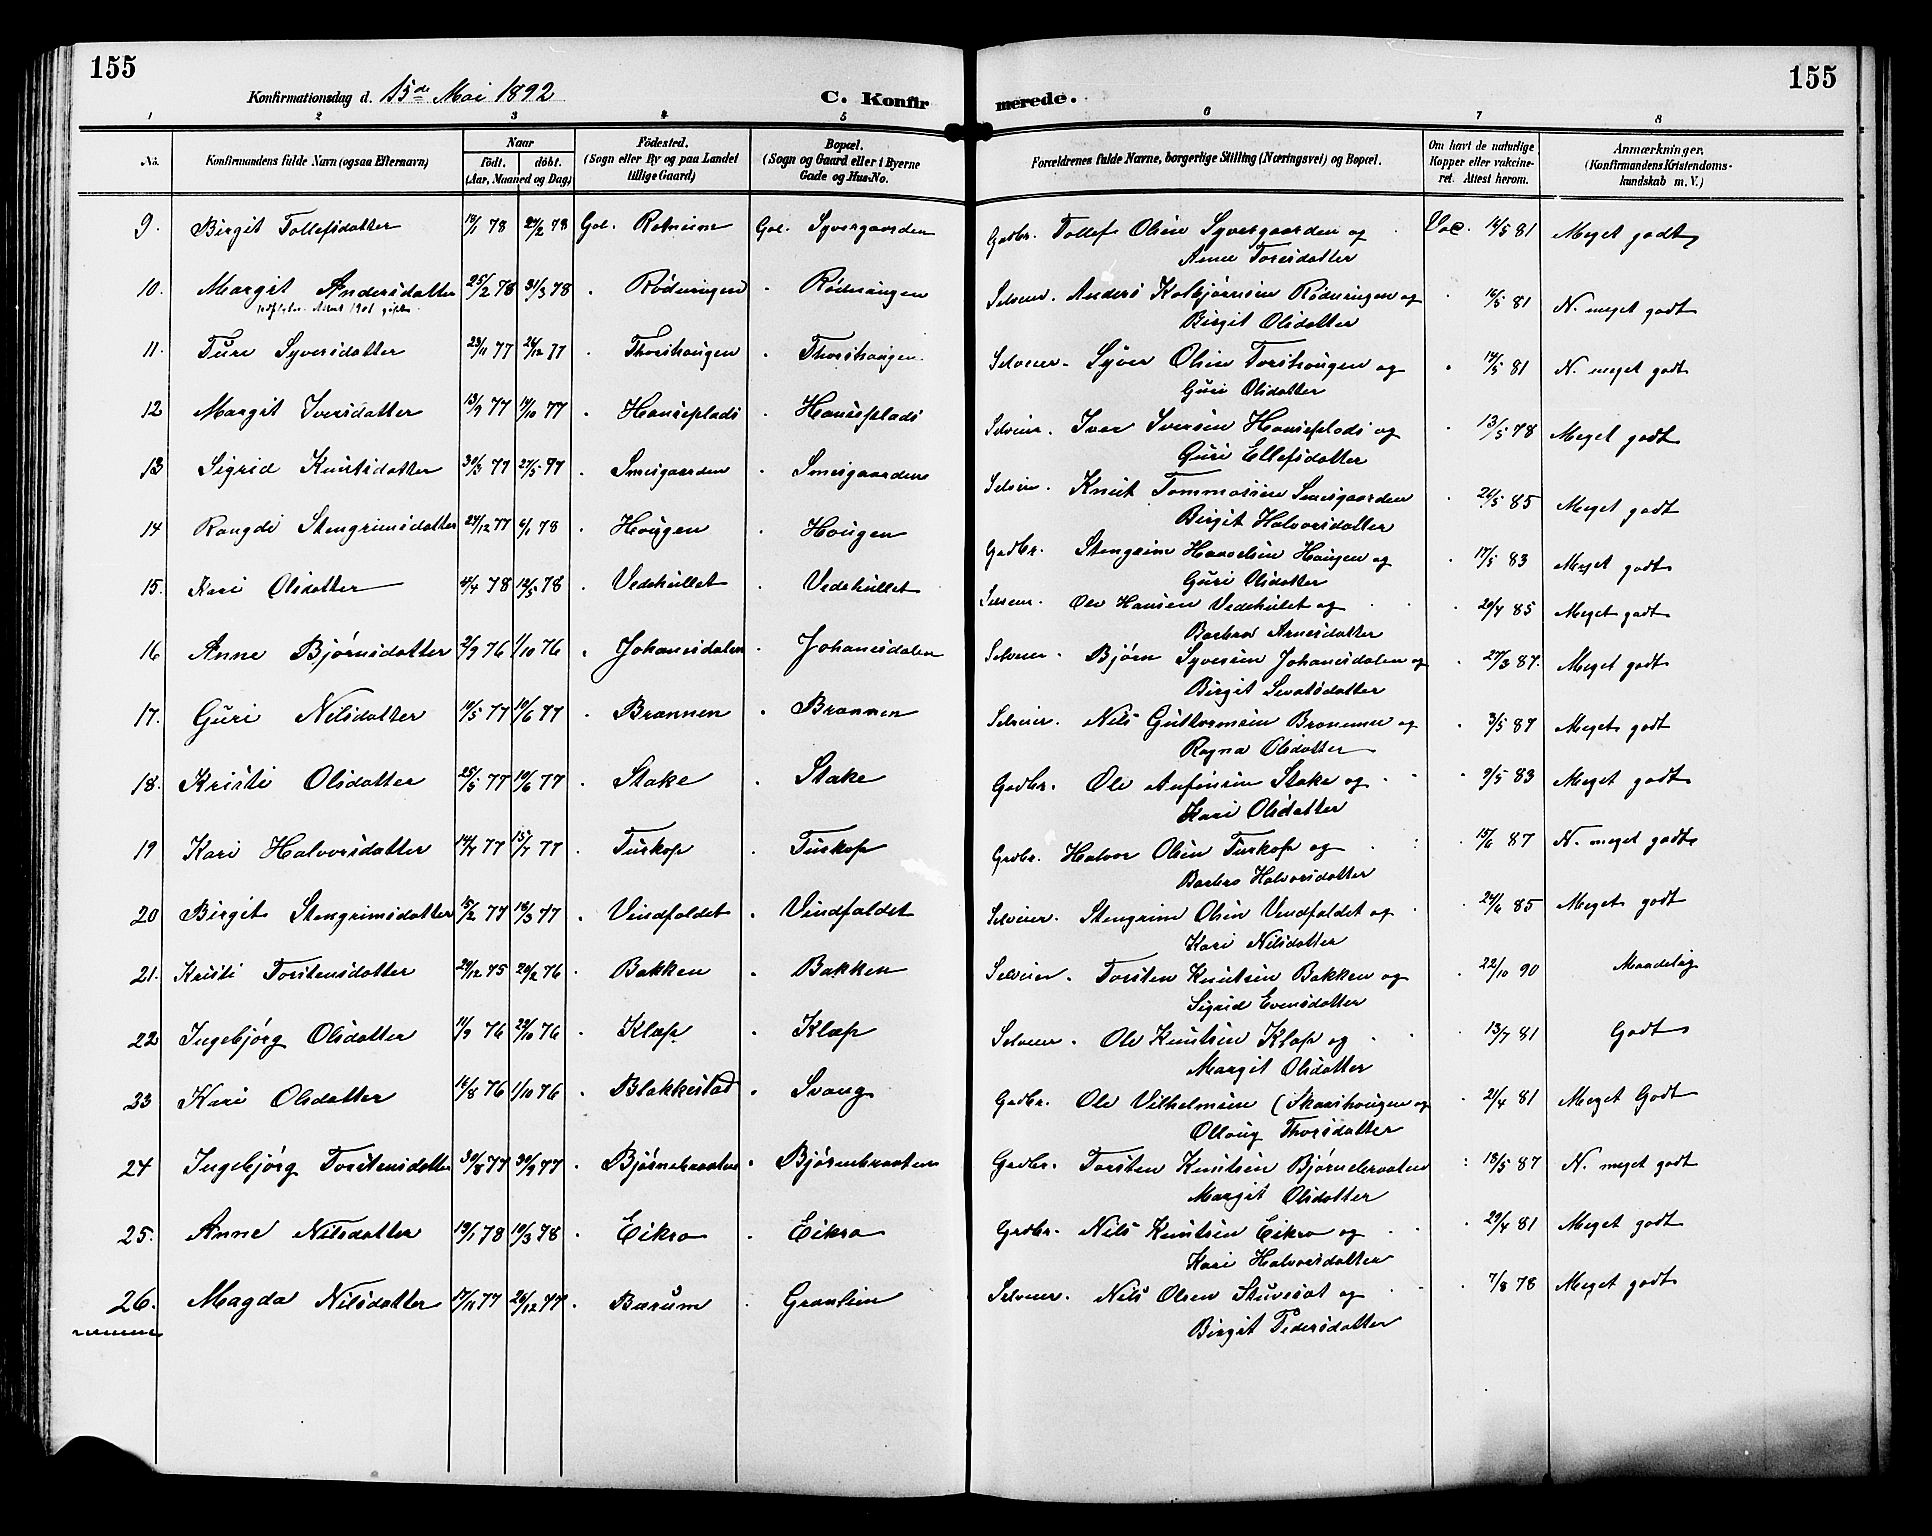 155
155
Konfirmationsdag d. 15de Mai 1892
C. Konfirmerede.
1 2 3 4 5 6 7 8
No. Konfirmandens fulde Navn (ogsaa Efternavn) Naar født. døbt. (Aar, Maaned og Dag) Födested. (Sogn eller By og paa Landet tillige Gaard) Bopæl. (Sogn og Gaard eller i Byerne Gade og Hus-No. Forældrenes fulde Navne, borgerlige Stilling (Næringsvei) og Bopæl. Om havt de naturlige Kopper eller vakcineret. Attest herom. Anmærkninger, (Konfirmandens Kristendomskundskab m. V.)
9. Birgit Tollefsdatter 78 78 Gol. Rotneim Gol. Syvergaarden Gadbr. Tollef Olsen Syvergaarden og Vac. 14/5 81 Meget godt
Anne Toresdatter
10. Margit Andersdatter 25/2 78 31/3 78 Rødningen Rødningen Selveier. Anders Kolbjørnsen Rødningen og 16/5 81 N. meget godt
Birgit Olsdatter
11. Turi Syversdatter 23/11 77 26/12 77 Thorshaugen Thorshaugen. Selveier. Syver Olsen Torshougen og 14/5 81 N. meget godt
Guri Olsdatter
12 Margit Iversdatter 13/9 77 14/10 77 Hanseplads Hanseplads Selveier. Iver Iversen Hanseplads og 13/5 78 Meget godt
Guri Ellefsdatter
13 Sigrid Knutsdatter 77 27/5 77 Smesgaarden Smesgaarden Selveier. Knut Tommassen Smesgaarden 85 Meget godt
Birgit Halvorsdatter
14 Rangdi Stengrimsdatter 24/12 77 6/1 78 Hougen Hougen Gadbr. Stengrim Hougen og 17/5 83 Meget godt
Guri Olsdatter
15. Kari Olsdatter 4/4 78 12/5 78 Vedehullet Vedehullet Selveier. Ole Hansen Vedehulet og 20/4 85 Meget godt
Barbro Arnesdatter
16 Anne Bjørnsdatter 2/9 76 1/10 76 Johanesdalen Johanesdalen Selveier. Bjørn Syversen Johanesdalen og 27/3 87. Meget godt
Birgit Sevatsdatter
17. Guri Nilsdatter 77 10/6 77 Brannen Brannen Selveier. Nils Guttormsen og 3/5 87 Meget godt
Ragna Olsdatter
18. Kristi Olsdatter 25/5 77 10/6 77 Stake Stake Gadbr. Ole Anfinsen Stake og 9/5 83 Meget godt
Kari Olsdatter
19 Kari Halvorsdatter 77 15/7 77 Turkop Turkop Gadbr. Halvor Olsen Turkop og 15/6 87 N. meget godt
Barbro Halvorsdatter
20 Birgit Stengrimsdatter 15/2 77 18/3 77 Vindfaldet Vindfaldet Selveier. Stengrim Olsen Vindfaldet og 24/6 85 Meget godt
Kari Nilsdatter
21. Kristi Torstensdatter 29/12 75 20/2 76 Bakken Bakken Selveier. Torsten Knutsen Bakken og 22/10 90 Maadelig
Sigrid Evensdatter
22 Ingebjørg Olsdatter 11/9 76 29/10 76 Klæp Klæp Selveier. Ole Knutsen Klæp og 13/7 81 Godt
Margit Olsdatter
23 Kari Olsdatter 16/8 76 1/10 76 Blakkestad Svang Gadbr. Ole Vilhelmsen (Skarshougen og 21/4 81 Meget Godt
Ollaug Thorsdatter
24 Ingebjørg Torstensdatter 30/8 77 30/9 77 Bjørnebraaten Bjørnebraaten Gadbr. Torsten Knutsen Bjørnebraaten 18/5 87 N. meget godt
Margit Olsdatter
25. Anne Nilsdatter 19/1 78 10/3 78 Eikro Eikro Gadbr. Nils Knutsen Eikro og 29/4 81 Meget godt
Kari Halvorsdatter
26. Magda Nilsdatter 17/11 77 26/12 77 Bærum Selveier. Nils Olsen og 7/8 78 Meget godt
Birgit Pedersdatter